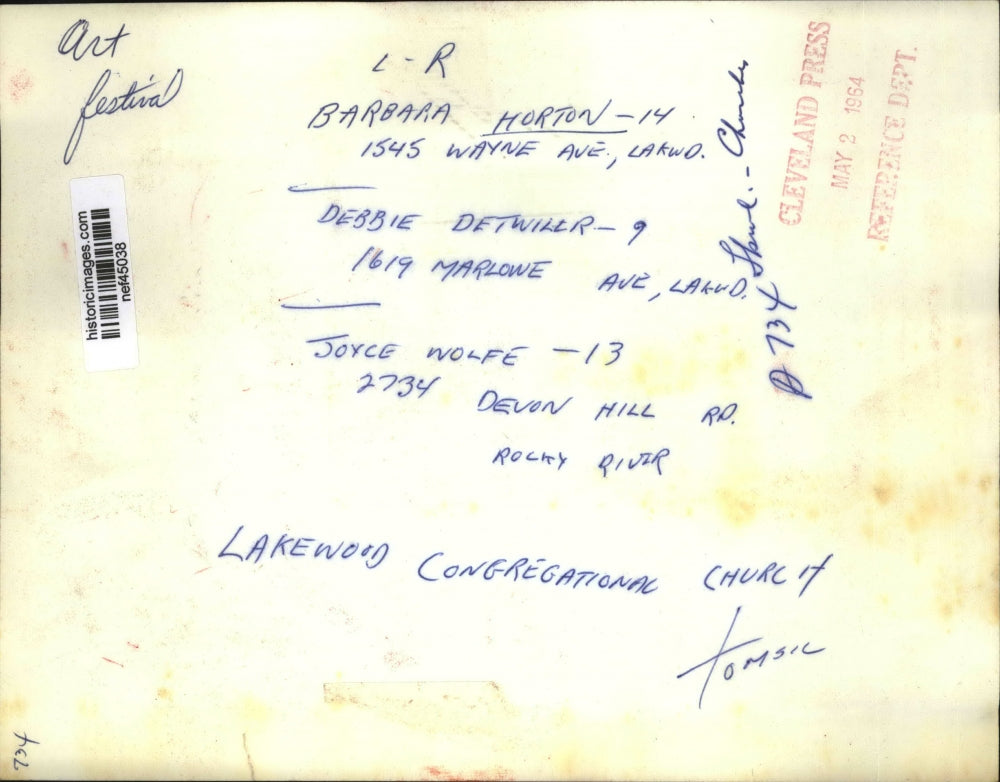 Art
festival
L - R
BARBARA HORTON - 14
1545 WAYNE AVE., LAKWD.
DEBBIE DETWILLR - 9
1619 MARLOWE AVE, LAKWD.
JOYCE WOLFE - 13
2734 DEVON HILL RD.
ROCKY RIVER
LAKEWOOD CONGREGATIONAL CHURCH
TOMSIC
CLEVELAND PRESS
MAY 2 1964
REFERENCE DEPT.
historicimages.com
nef45038
734